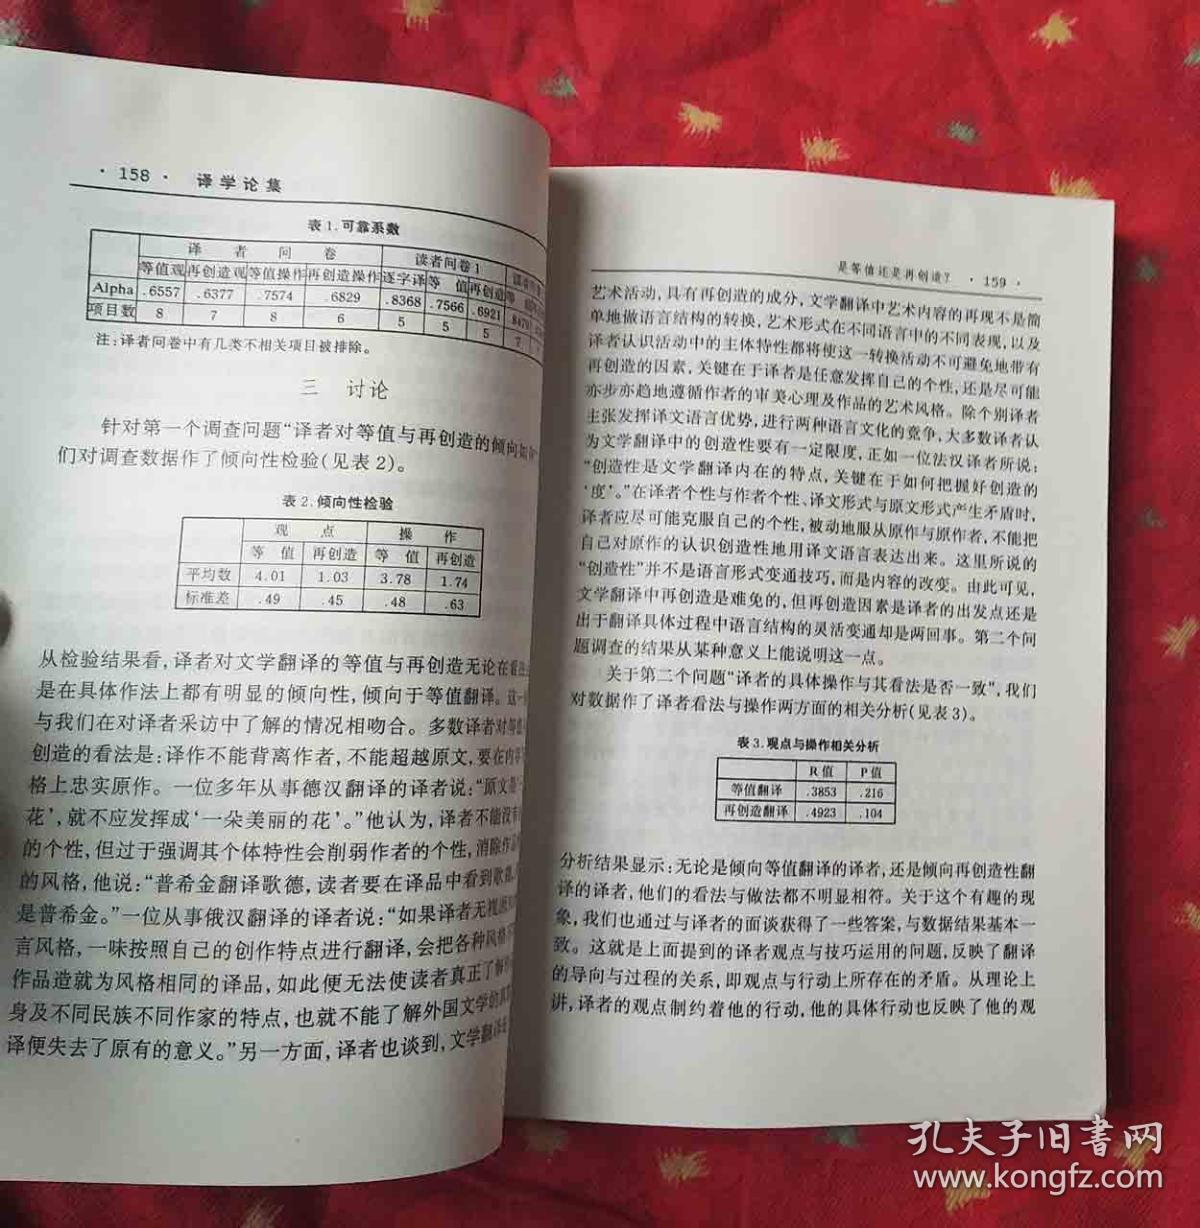 · 158 · 译学论集
表1.可靠系数
译 者 问 卷 读者问卷1
等值观 再创造观 等值操作 再创造操作 逐字译 等 值 再创造
Alpha .6557 .6377 .7574 .6829 .8368 .7566 .6921
项目数 8 7 8 6 5 5 5 7
注:译者问卷中有几类不相关项目被排除。
三 讨论
针对第一个调查问题“译者对等值与再创造的倾向如何”
们对调查数据作了倾向性检验(见表2)。
表2.倾向性检验
观 点 操 作
等 值 再创造 等 值 再创造
平均数 4.01 1.03 3.78 1.74
标准差 .49 .45 .48 .63
从检验结果看,译者对文学翻译的等值与再创造无论在看
是在具体作法上都有明显的倾向性,倾向于等值翻译。这一
与我们在对译者采访中了解的情况相吻合。多数译者对等值
创造的看法是:译作不能背离作者,不能超越原文,要在内容
格上忠实原作。一位多年从事德汉翻译的译者说:“原文是
花’,就不应发挥成‘一朵美丽的花’。”他认为,译者不能没有
的个性,但过于强调其个体特性会削弱作者的个性,消除作品
的风格,他说:“普希金翻译歌德,读者要在译品中看到歌德,
是普希金。”一位从事俄汉翻译的译者说:“如果译者无视原
言风格,一味按照自己的创作特点进行翻译,会把各种风格
作品造就为风格相同的译品,如此便无法使读者真正了解
身及不同民族不同作家的特点,也就不能了解外国文学的真
译便失去了原有的意义。”另一方面,译者也谈到,文学翻译
是等值还是再创造? · 159 ·
艺术活动,具有再创造的成分,文学翻译中艺术内容的再现不是简
单地做语言结构的转换,艺术形式在不同语言中的不同表现,以及
译者认识活动中的主体特性都将使这一转换活动不可避免地带有
再创造的因素,关键在于译者是任意发挥自己的个性,还是尽可能
亦步亦趋地遵循作者的审美心理及作品的艺术风格。除个别译者
主张发挥译文语言优势,进行两种语言文化的竞争,大多数译者认
为文学翻译中的创造性要有一定限度,正如一位法汉译者所说:
“创造性是文学翻译内在的特点,关键在于如何把握好创造的
‘度’。”在译者个性与作者个性、译文形式与原文形式产生矛盾时,
译者应尽可能克服自己的个性,被动地服从原作与原作者,不能把
自己对原作的认识创造性地用译文语言表达出来。这里所说的
“创造性”并不是语言形式变通技巧,而是内容的改变。由此可见,
文学翻译中再创造是难免的,但再创造因素是译者的出发点还是
出于翻译具体过程中语言结构的灵活变通却是两回事。第二个问
题调查的结果从某种意义上能说明这一点。
关于第二个问题“译者的具体操作与其看法是否一致”,我们
对数据作了译者看法与操作两方面的相关分析(见表3)。
表3.观点与操作相关分析
R值 P值
等值翻译 .3853 .216
再创造翻译 .4923 .104
分析结果显示:无论是倾向等值翻译的译者,还是倾向再创造性翻
译的译者,他们的看法与做法都不明显相符。关于这个有趣的现
象,我们也通过与译者的面谈获得了一些答案,与数据结果基本一
致。这就是上面提到的译者观点与技巧运用的问题,反映了翻译
的导向与过程的关系,即观点与行动上所存在的矛盾。从理论上
讲,译者的观点制约着他的行动,他的具体行动也反映了他的观
孔夫子旧书网
www.kongfz.com